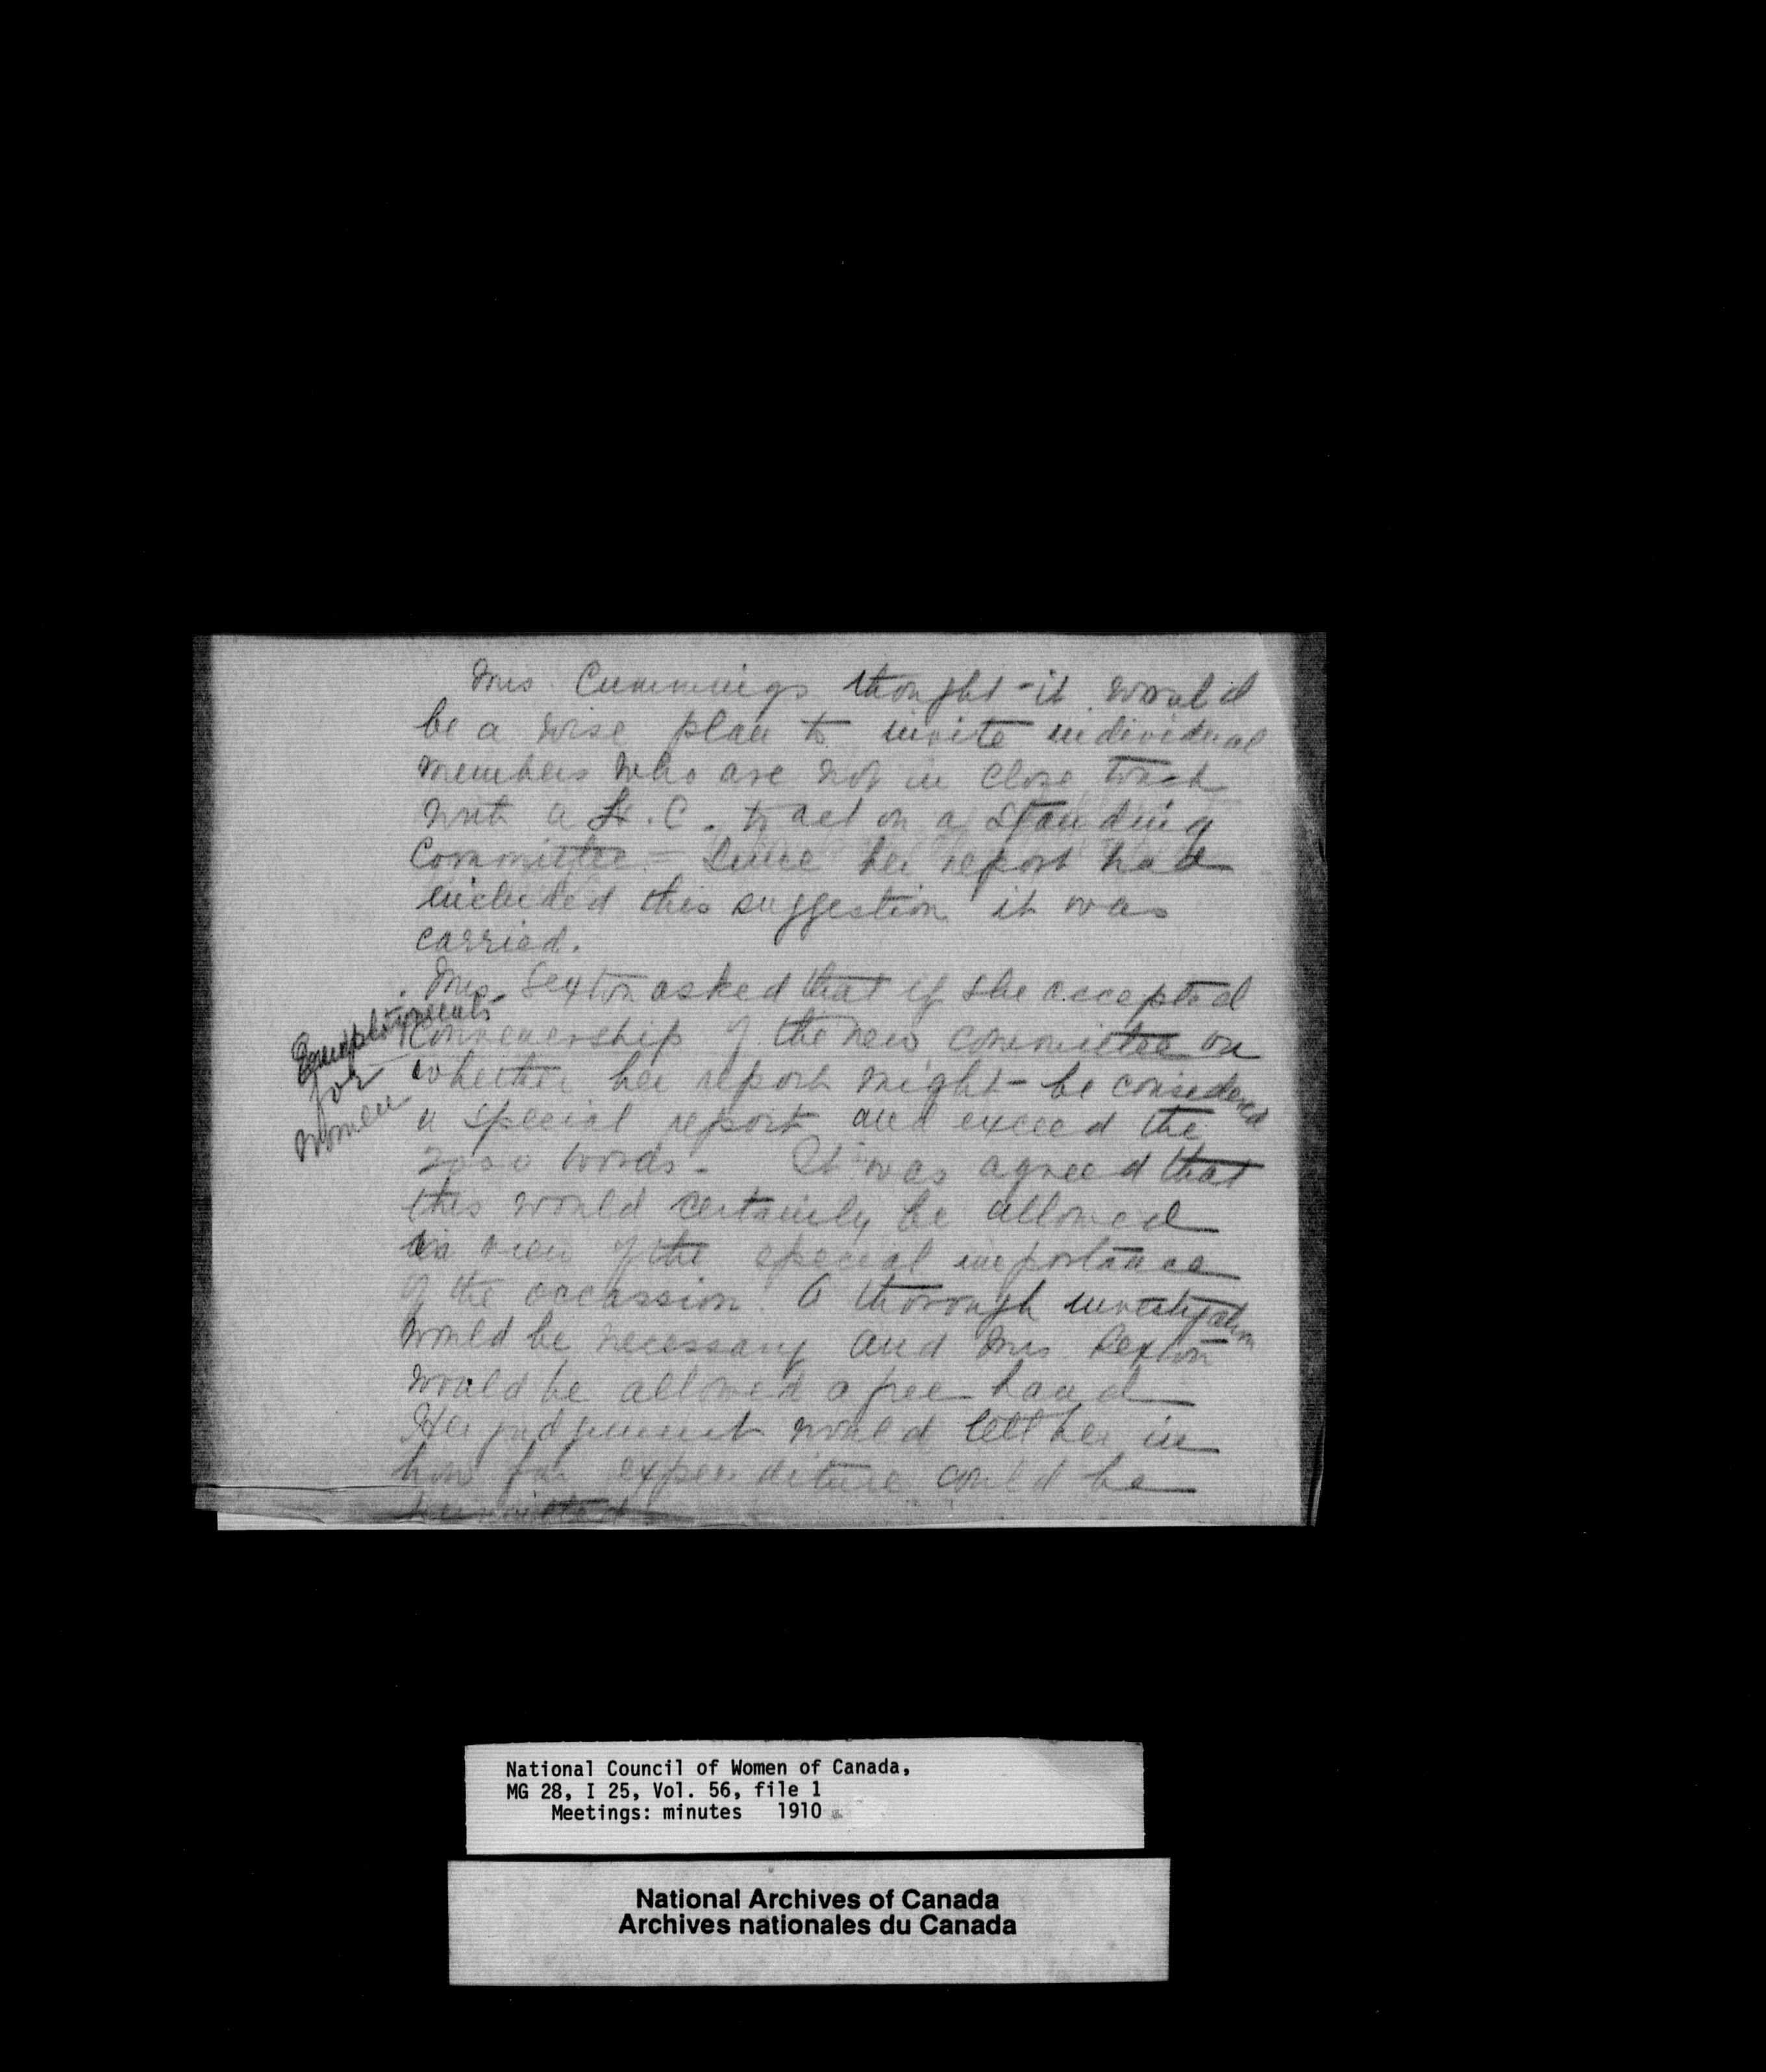 Mrs. Cummings thought it would
be a wise plan to invite individual
members who are not in close touch
with a L.C. to act on a Standing
Committee - Since her report had
included this suggestion it was
carried.
Mrs. Sexton asked that if she accepted
Convenership of the new committee on
Employments
for
Women
whether her report might be considered
a special report and exceed the
2000 words - It was agreed that
this would certainly be allowed
in view of the special importance
of the occassion. A thorough investigation
would be necessary and Mrs. Sexton
would be allowed a free hand
Her judgement would lett her in
how far expenditure could be
National Council of Women of Canada,
MG 28, I 25, Vol. 56, file 1
Meetings: minutes 1910
National Archives of Canada
Archives nationales du Canada